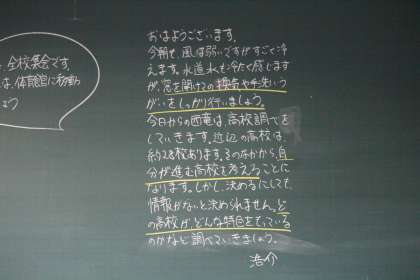 全校集会です。
は、体育館に移動
しょう
おはようございます。
今朝も、風は弱いですがすごく冷
えます。水道水も冷たく感じます
が、窓を開けての換気や手洗いう
がいをしっかり行いましょう。
今日からの西竜は、高校調べを
していきます。近辺の高校は、
約28校あります。そのなかから、自
分が進む高校を考えることに
なります。しかし、決めるにしても、
情報がないと決められません。ど
の高校が、どんな特色をもっている
のかなど調べていきましょう。
浩介